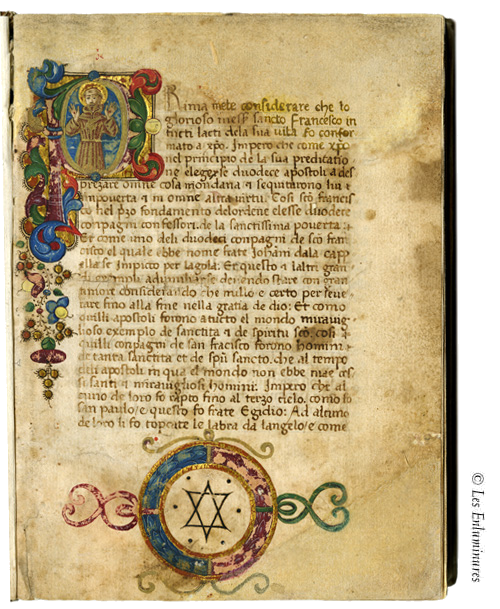 Rima mẽte considerare che lo
glorioso mess̃ sancto Francesco in
tucti lacti dela sua vita fo confor
mato a xp̃o. Impero che come xp̃o
nel principio de la sua predicatio
ne elegesse duodece apostoli a des
prezare omne cosa mondana & sequitarono lui i
inpoverta & in omne altra virtu. Cosi scõ francis
co nel p̃zo fondamento delordene elesse duodece
compagni confessori de la sanctissima poverta:
Et come uno deli duodeci compagni de scõ fran
cisco el quale ebbe nome frate Johãni dala capp
ella se impicco per lagola. Et questo & laltri gran
amore considerando che nullo e certo per seve
rare fino alla fine nella gratia de dio: Et como
quilli apostoli forono a tucto el mondo miravig
lioso exemplo de sanctita & de spiritu scõ. cosi q
uilli compagni de san fracisco forono homini
de tanta sanctita et de spũ sancto. che al tempo
deli apostoli in qua el mondo non ebbe mae cos
si santi & miravigliosi homini: Impero che al
cuno de loro fo rapto fino al terzo cielo. como lo
san paulo/e questo fo frate Egidio: Ad alcuno
de loro li fo tochate le labra da langelo/e come
© Les Enluminures